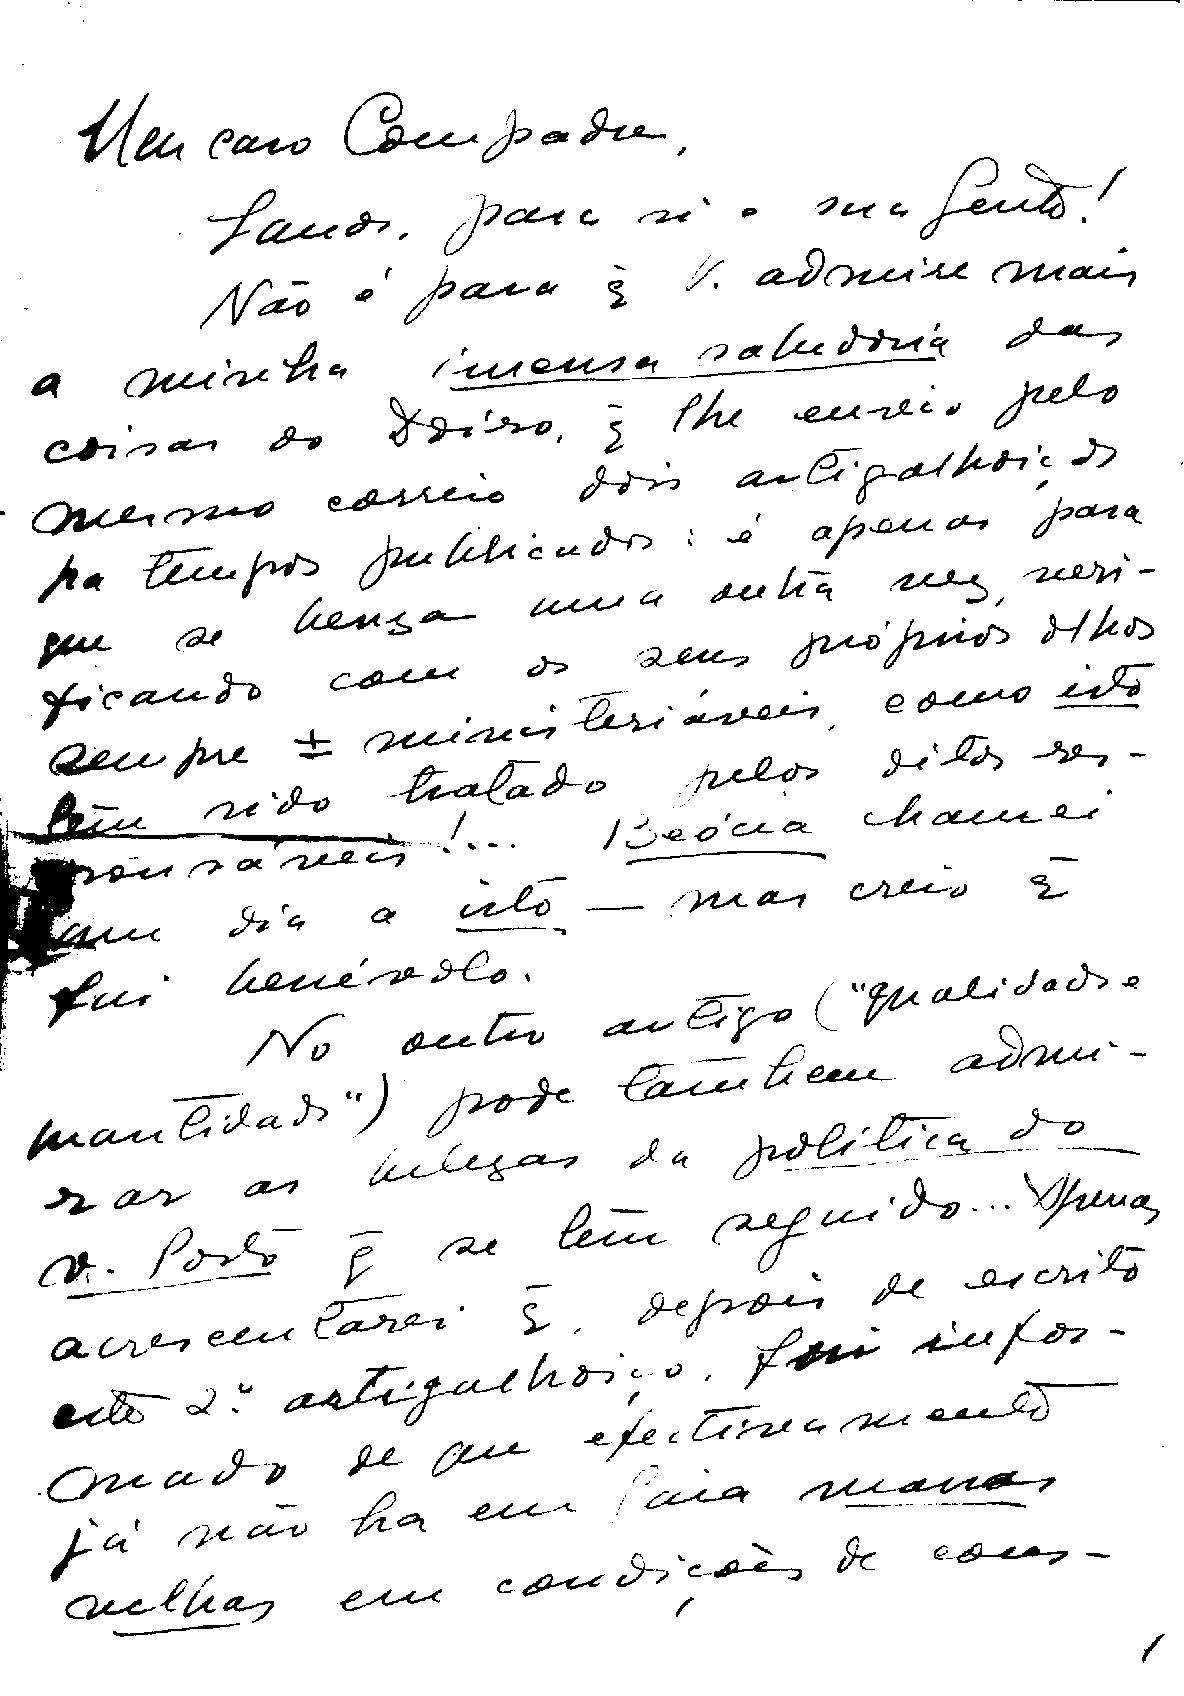 Meu caro Compadre,
Saude, para si e sua Gente!
Não é para q̃ V. admire mais
a minha imensa sabedoria das
coisas do Doiro, q̃ lhe envio pelo
mesmo correio dois artigalhoiços
ha tempos publicados: é apenas para
que se benza uma outra vez, veri-
ficando com os seus próprios olhos
sempre ± ministeriáveis, como isto
tem sido tratado pelos ditos res-
ponsáveis!... Beócia chamei
um dia a isto — mas creio q̃
fui benévolo.
No outro artigo ("qualidade e
mantidade") pode tambem admi-
rar as belezas da politica do
v. Porto q̃ se tem seguido... Apenas
acrescentarei q̃, depois de escrito
este 2º artigalhoiço, fui infor-
mado de que efectivamente
já não ha em Gaia massas
velhas em condições de con-
1